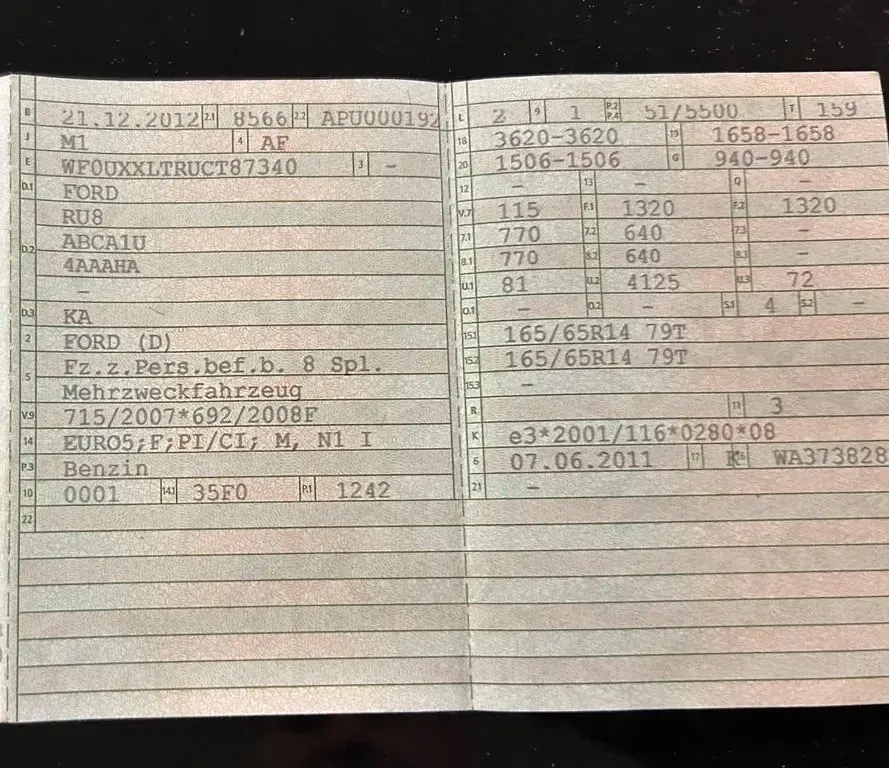 B 21.12.2012 2.1 8566 2.2 APU000192
J M1 4 AF
E WF0UXXLTRUCT87340 3 –
D.1 FORD
RU8
D.2 ABCA1U
4AAAHA
–
D.3 KA
2 FORD (D)
5 Fz.z.Pers.bef.b. 8 Spl.
Mehrzweckfahrzeug
V.9 715/2007*692/2008F
14 EURO5;F;PI/CI; M, N1 I
P.3 Benzin
10 0001 14.1 35F0 P.1 1242
22
L 2 9 1 P.2 P.4 51/5500 T 159
18 3620-3620 19 1658-1658
20 1506-1506 G 940-940
12 – 13 – Q –
V.7 115 F.1 1320 F.2 1320
7.1 770 7.2 640 7.3 –
8.1 770 8.2 640 8.3 –
U.1 81 U.2 4125 U.3 72
O.1 – O.2 – S.1 4 S.2 –
15.1 165/65R14 79T
15.2 165/65R14 79T
15.3 –
R 11 3
K e3*2001/116*0280*08
6 07.06.2011 17 K 16 WA373828
21 –